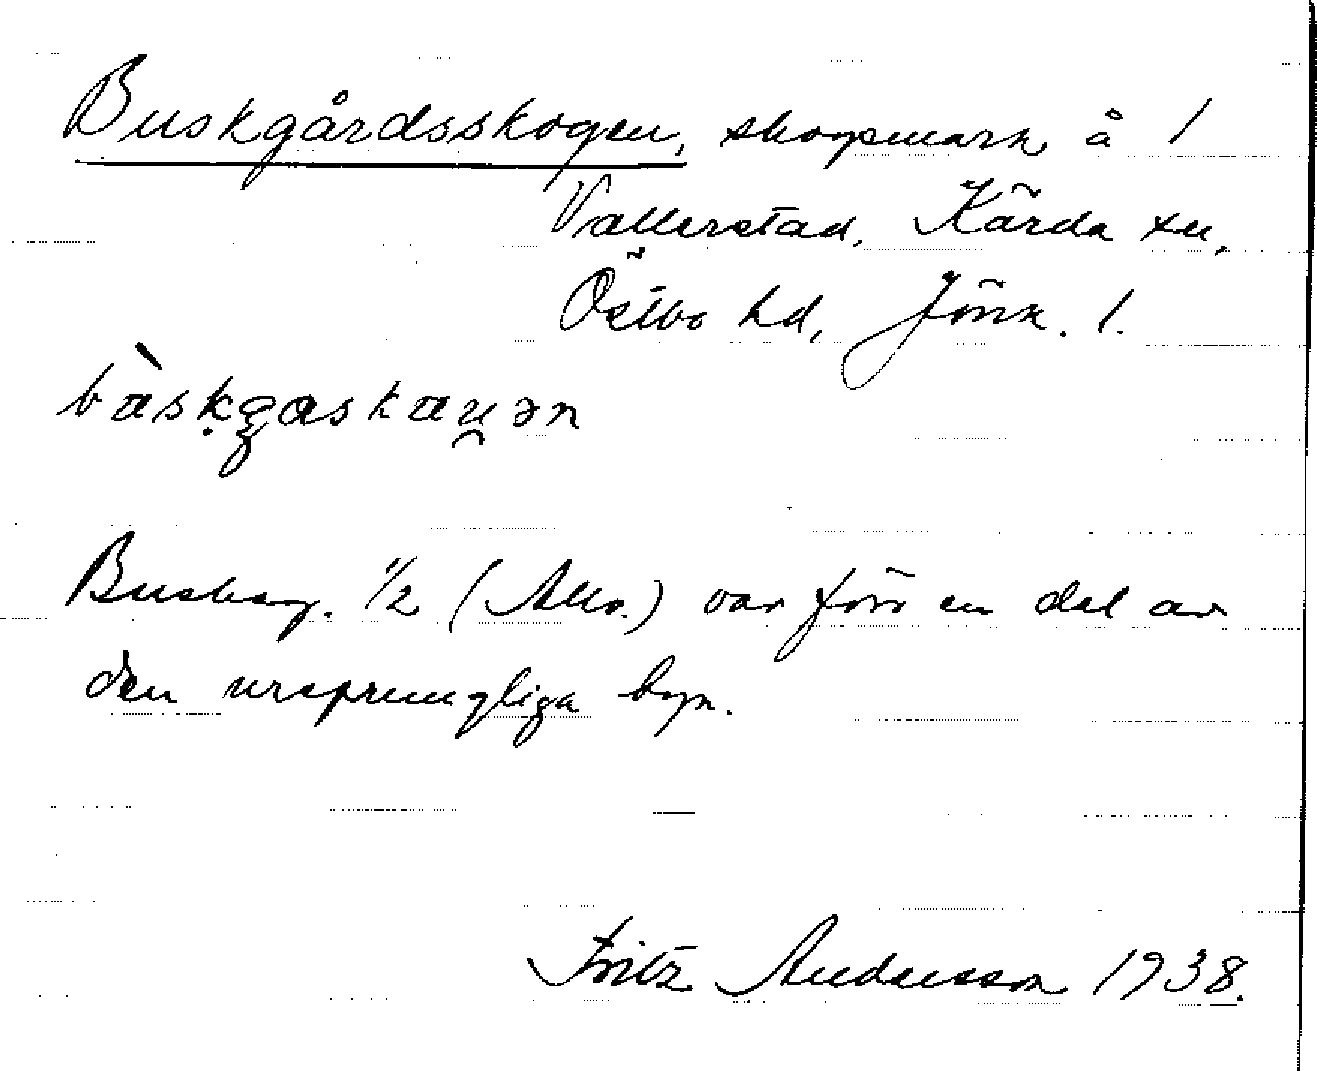 Buskgårdsskogen, skogsmark å 1
Vallerstad, Kärda sn,
Östbo hd, Jönk. l.
bàskgaskaųən
Buskag. 1/2 (Allo.) var förr en del av
den ursprungliga byn.
Fritz Andersson 1938.